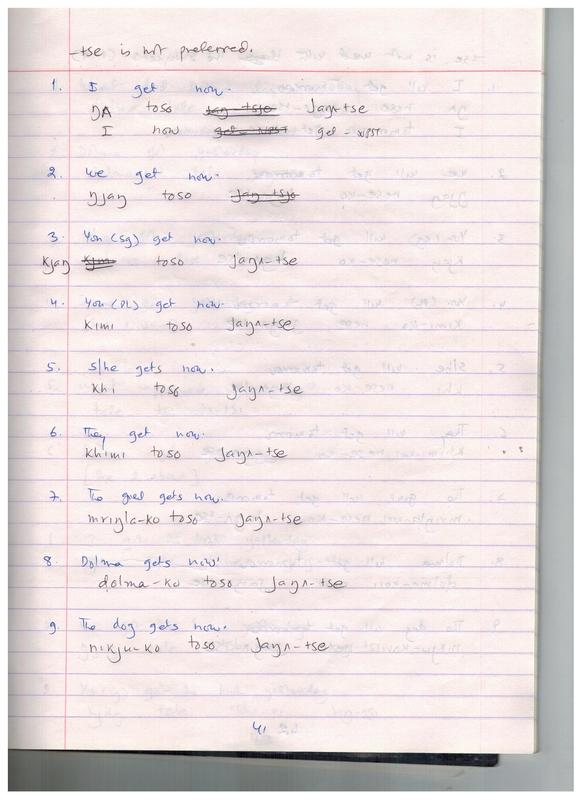 -tse is not preferred.
1. I get now.
ŋʌ toso jaŋʌ-tse
I now get-NPST
2. We get now.
ŋjaŋ toso jaŋ-tsjo
3. You (Sg) get now.
kjaŋ toso jaŋʌ-tse
4. You (PL) get now.
kimi toso jaŋʌ-tse
5. S/he gets now.
khi toso jaŋʌ-tse
6. They get now.
khimi toso jaŋʌ-tse
7. The gued gets now.
mriŋla-ko toso jaŋʌ-tse
8. Dolma gets now.
dolma-ko toso jaŋʌ-tse
9. The dog gets now.
nikju-ko toso jaŋʌ-tse
41